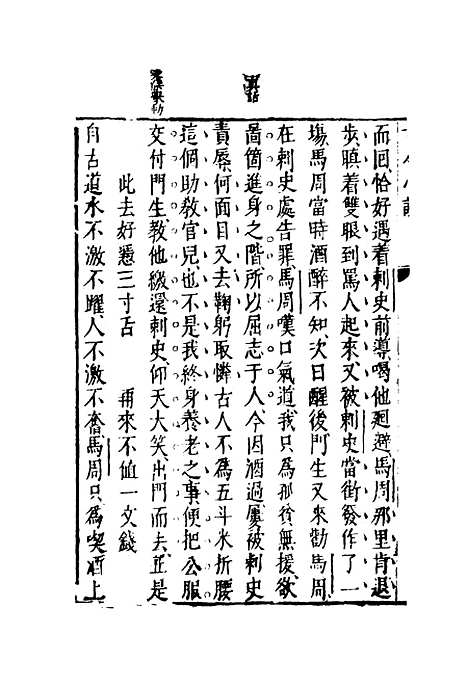 而回恰好遇着刺史前導喝他廻避馬周那里肯退
步瞋着雙眼到罵人起來又被刺史當街發作了一
塲馬周當時酒醉不知次日醒後門生又來勸馬周
在刺史處告罪馬周嘆口氣道我只爲孤貧無援欲
啚箇進身之階所以屈志于人今因酒過屢被刺史
責辱何面目又去鞠躬取憐古人不爲五斗米折腰
這個助教官兒也不是我終身養老之事便把公服
交付門生教他繳還刺史仰天大笑出門而去正是
此去好憑三寸舌　再來不值一文錢
自古道水不激不躍人不激不奮馬周只爲喫酒上